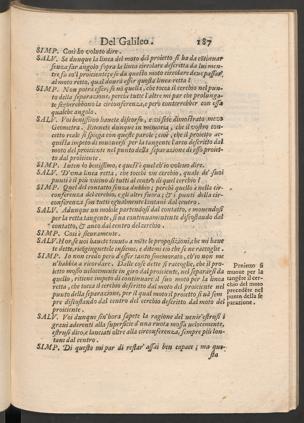 Del Galileo. 187
SIMP. Così ho voluto dire.
SALV. Se dunque la linea del moto del proietto si ha da continuar
senza far angolo sopra la linea circolare descritta da lui men-
tre fu co'l proiciente;
SIMP. Non potrà esser, se non quella, che tocca il cerchio nel pun-
to della separazione, perciò tutte l'altre mi par che prolunga-
te segherebbono la circonferenza, e però conterrebber con essa
qualche angolo.
SALV. Voi benissimo havete discorso, e vi siete dimostrato mezo
Geometra. Ritenete dunque in memoria, che il vostro con-
cetto reale si spiega con queste parole, cioè, che il proietto ac-
quista impeto di muoversi per la tangente l'arco descritto dal
moto del proiciente nel punto della separazione di esso proiet-
to dal proiciente.
SIMP. Intendo benissimo, e quest'è quel ch'io voleva dire.
SALV. D'una linea retta, che tocchi un cerchio, quale de' suoi
punti è il più vicino di tutti al centro di quel cerchio?
SIMP. Quel del contatto senza dubbio; perchè quello è nella cir-
conferenza del cerchio, e gli altri fuora; & i punti della cir-
conferenza son tutti egualmente lontani dal centro.
SALV. Adunque un mobile partendosi dal contatto, e movendosi
per la retta tangente, si va continuamente discostando dal
contatto, & anco dal centro del cerchio.
SIMP. Così è sicuramente.
SALV. Hor, se voi havete tenuto a mente le proposizioni, che mi have-
te dette, raggiungetele insieme, e ditemi ciò che se ne raccoglie.
SIMP. Io non credo però d'esser tanto smemorato, ch'io non me
n'habbia a ricordare. Dalle cose dette si raccoglie, che il proiet-
to mosso velocemente in giro dal proiciente, nel separarsi da
quello, ritiene impeto di continuare il suo moto per la linea
retta, che tocca il cerchio descritto dal moto del proiciente nel
punto della separazione, per il qual moto il proietto si và sem-
pre discostando dal centro del cerchio descritto dal moto del
proiciente.
Proietto si
muove per la
tangente il cer-
chio del moto
precedente nel
punto della se-
parazione.
SALV. Voi dunque sin'hora sapete la ragione del venir'estrusi i
gravi aderenti alla superficie d'una ruota mossa velocemente,
estrusi dico, e lanciati oltre alla circonferenza, sempre più lon-
tani dal centro.
SIMP. Di questo mi par di restar' assai ben capace; ma que-
sta